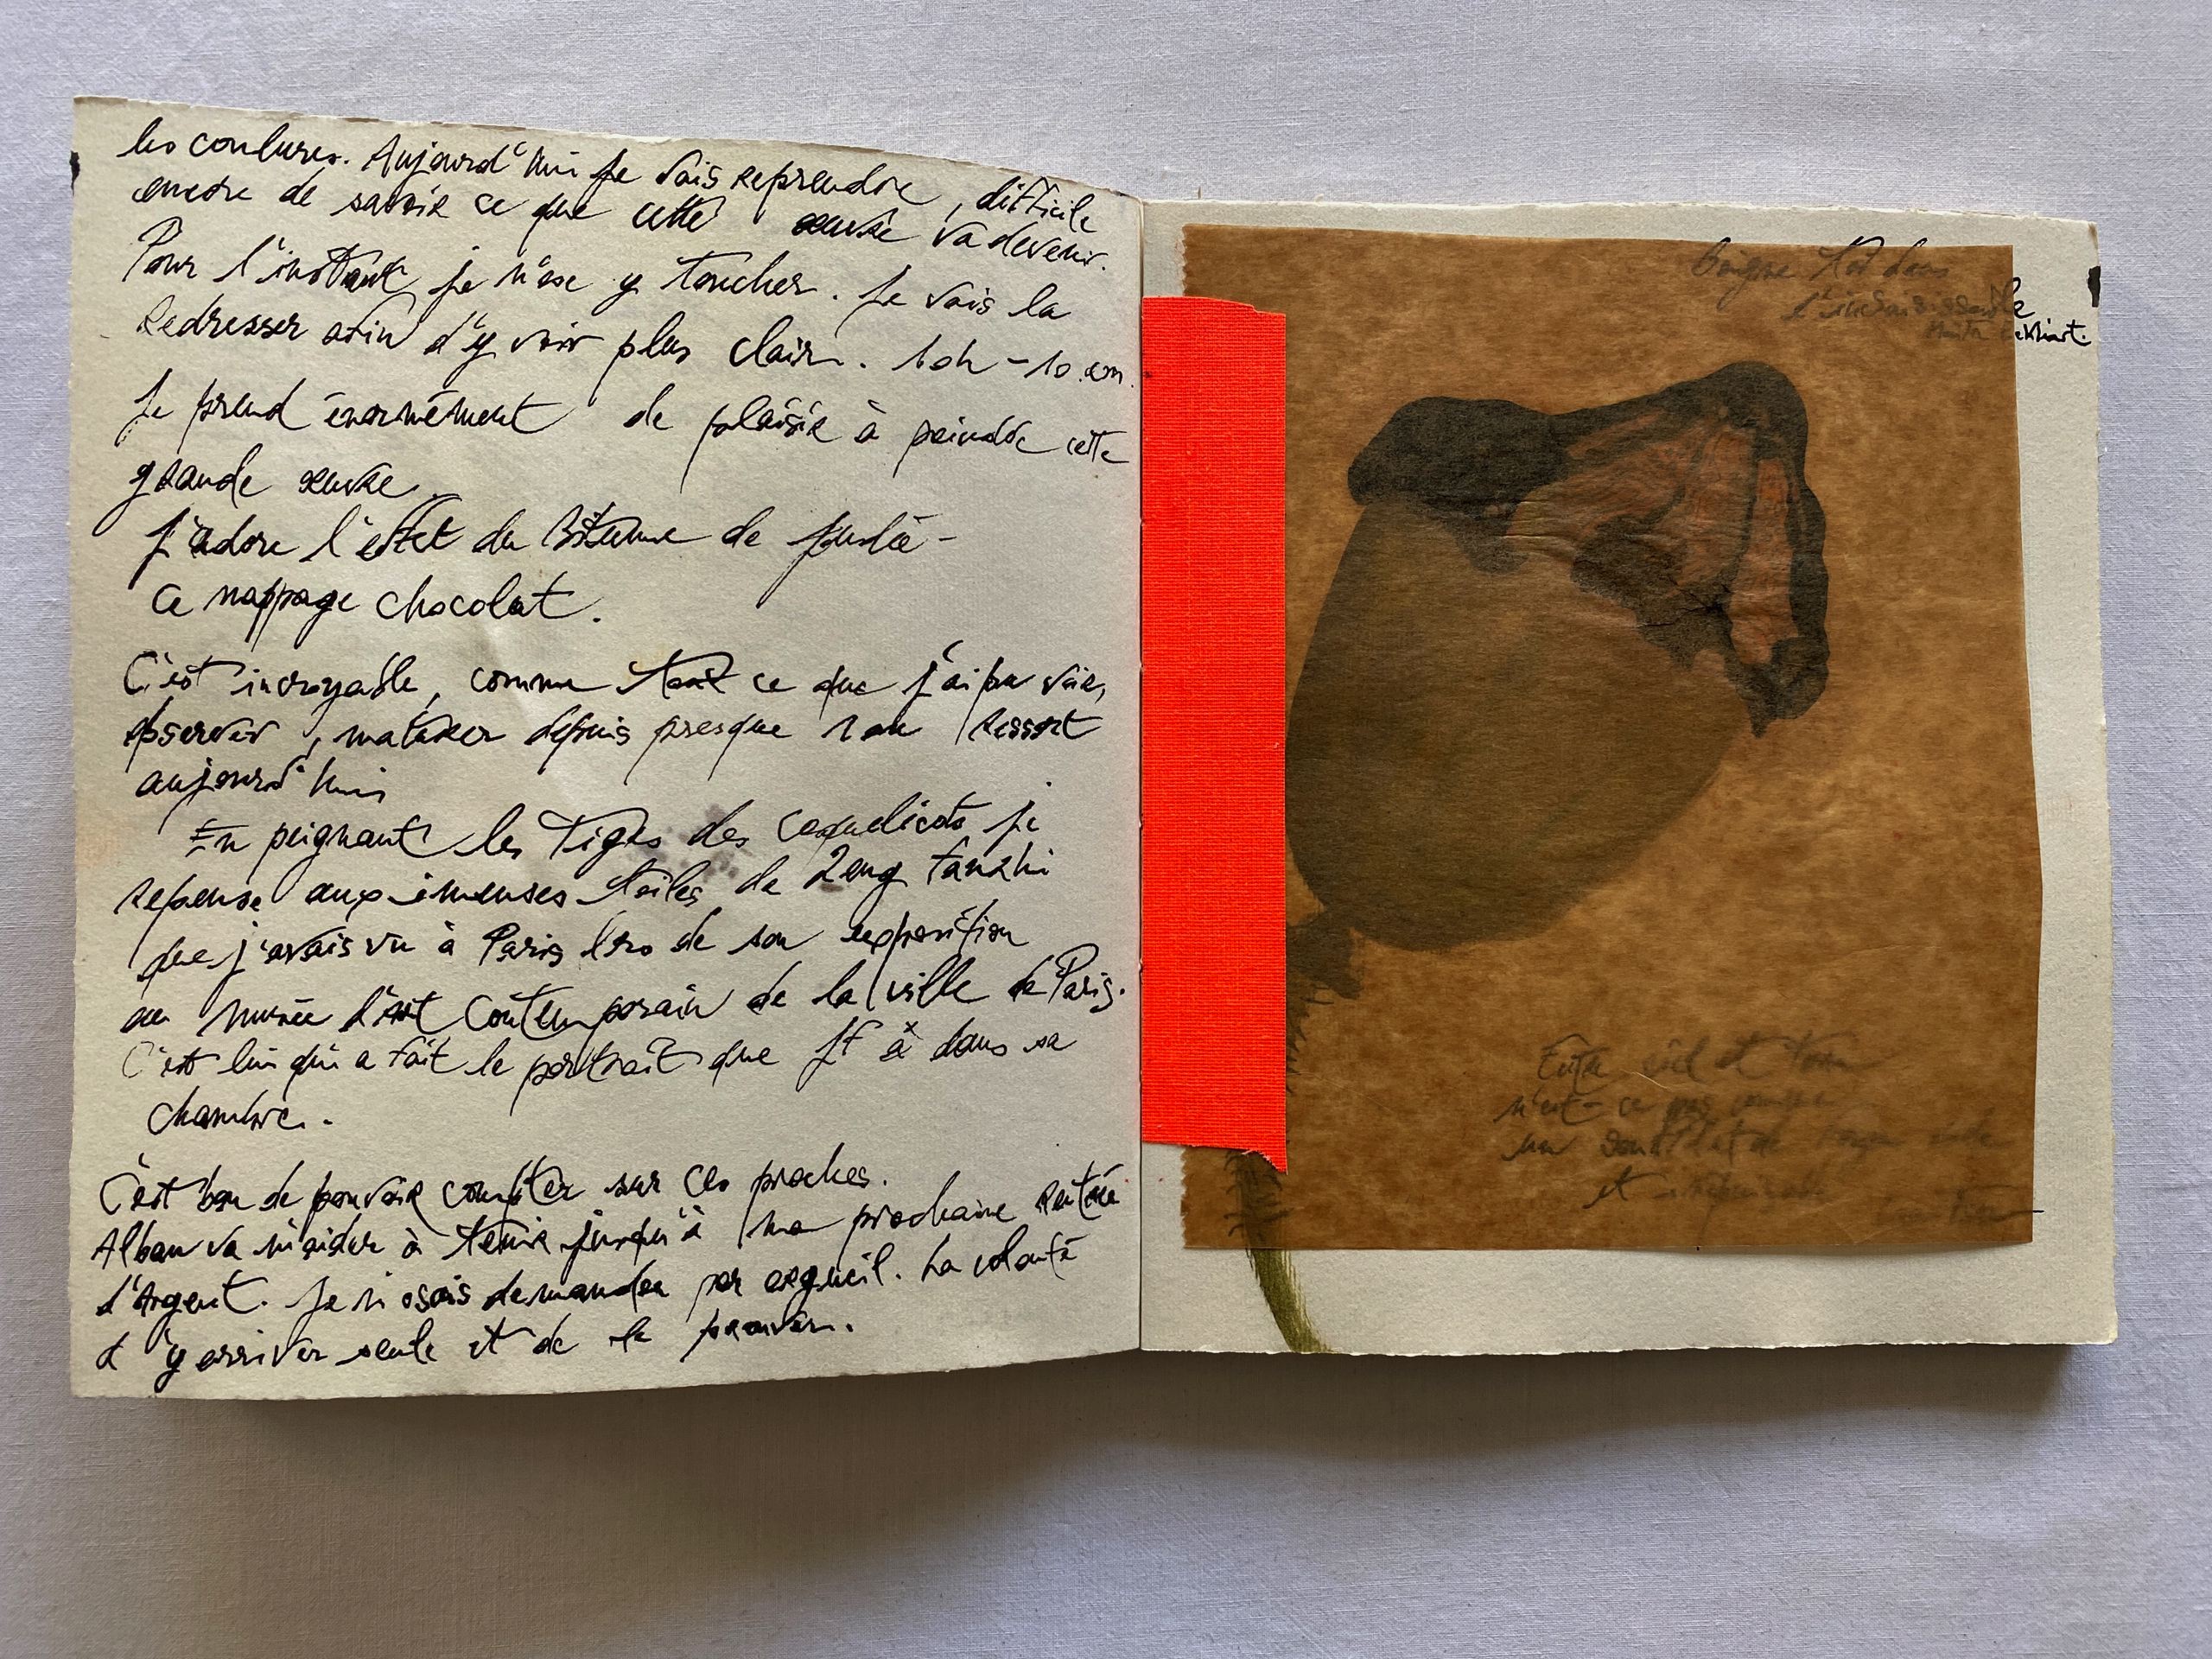 les coulures. Aujourd'hui je vais reprendre, difficile
encore de savoir ce que cette œuvre va devenir.
Pour l'instant je n'ose y toucher. Je vais la
Redresser afin d'y voir plus clair. 10h - 10.
Je prend énormément de plaisir à peindre cette
grande œuvre
J'adore l'effet du Bitume de Judée -
Ce nappage chocolat.
C'est incroyable, comme tout ce que j'ai pu voir,
observer, depuis presque 1 an Ressort
aujourd'hui
En peignant les Tiges des coquelicots je
repense aux immenses toiles de Zeng fanzhi
que j'avais vu à Paris lrs de son exposition
au musée d'art Contemporain de la ville de Paris.
C'est lui qui a fait le portrait que JF à dans sa
chambre.
C'est bon de pouvoir compter sur ces proches.
Alban va m'aider à tenir jusqu'à ma prochaine rentrée
d'Argent. Je n'osais demander par orgueil. La volonté
d'y arriver seule et de le prouver.
dans
l'
ckhart.
Entre ciel et
n'est-ce pas
un
et